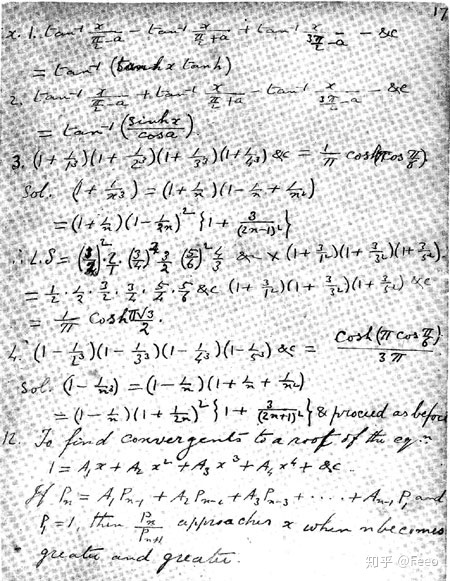 17
x. 1. tan⁻¹ x/(π/2 - a) - tan⁻¹ x/(π/2 + a) + tan⁻¹ x/(3π/2 - a) - &c
= tan⁻¹ (tanh x tan a)
2. tan⁻¹ x/(π/2 - a) + tan⁻¹ x/(π/2 + a) - tan⁻¹ x/(3π/2 - a) - &c
= tan⁻¹ (sinh x / cos a).
3. (1 + 1/1³)(1 + 1/2³)(1 + 1/3³)(1 + 1/4³) &c = 1/π cosh(π cos π/6)
Sol. (1 + 1/n³) = (1 + 1/n)(1 - 1/n + 1/n²)
= (1 + 1/n)(1 - 1/2n)² {1 + 3/(2n-1)²}
∴ L.S = (1/2)² 2/1 · (3/4)² 3/2 · (5/6)² 4/3 &c × (1 + 3/1²)(1 + 3/3²)(1 + 3/5²).
= 1/2 · 1/2 · 3/2 · 3/4 · 5/4 · 5/6 &c (1 + 3/1²)(1 + 3/3²)(1 + 3/5²) &c
= 1/π cosh π√3/2.
4. (1 - 1/2³)(1 - 1/3³)(1 - 1/4³)(1 - 1/5³) &c = cosh(π cos π/6) / 3π.
Sol. (1 - 1/n³) = (1 - 1/n)(1 + 1/n + 1/n²)
= (1 - 1/n)(1 + 1/2n)² {1 + 3/(2n+1)²} & proceed as before
12. To find convergents to a root of the eqn:
1 = A₁x + A₂x² + A₃x³ + A₄x⁴ + &c.
If Pₙ = A₁Pₙ₋₁ + A₂Pₙ₋₂ + A₃Pₙ₋₃ + ····· + Aₙ₋₁P₁ and
P₁ = 1, then Pₙ/Pₙ₊₁ approaches x when n becomes
greater and greater.
知乎 @Feeo